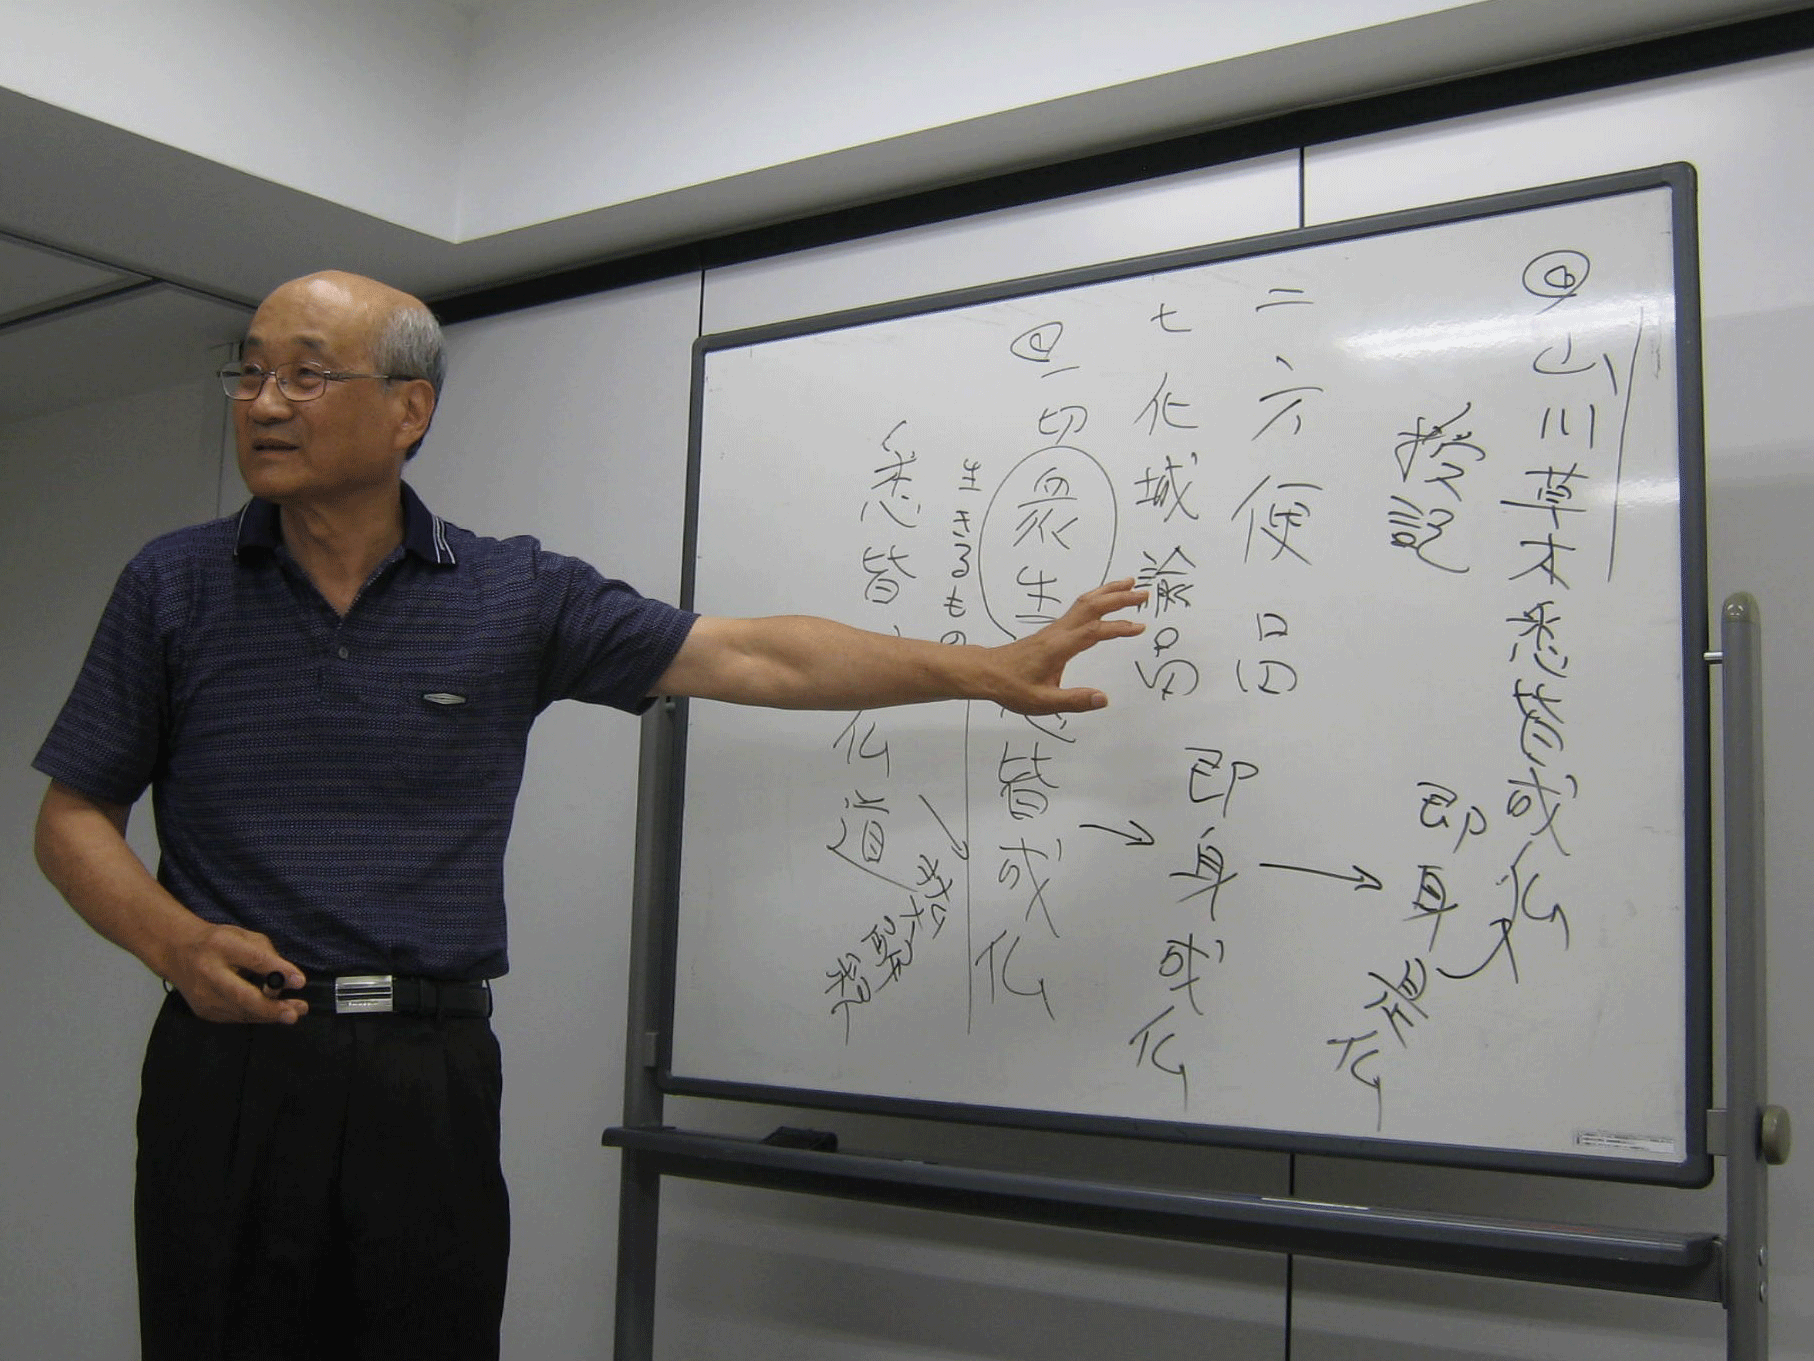 山川草木悉皆成仏
即身成仏
二方便品
七化城喩品
即身成仏
一切衆生悉皆成仏
生きるもの
悉皆
仏道